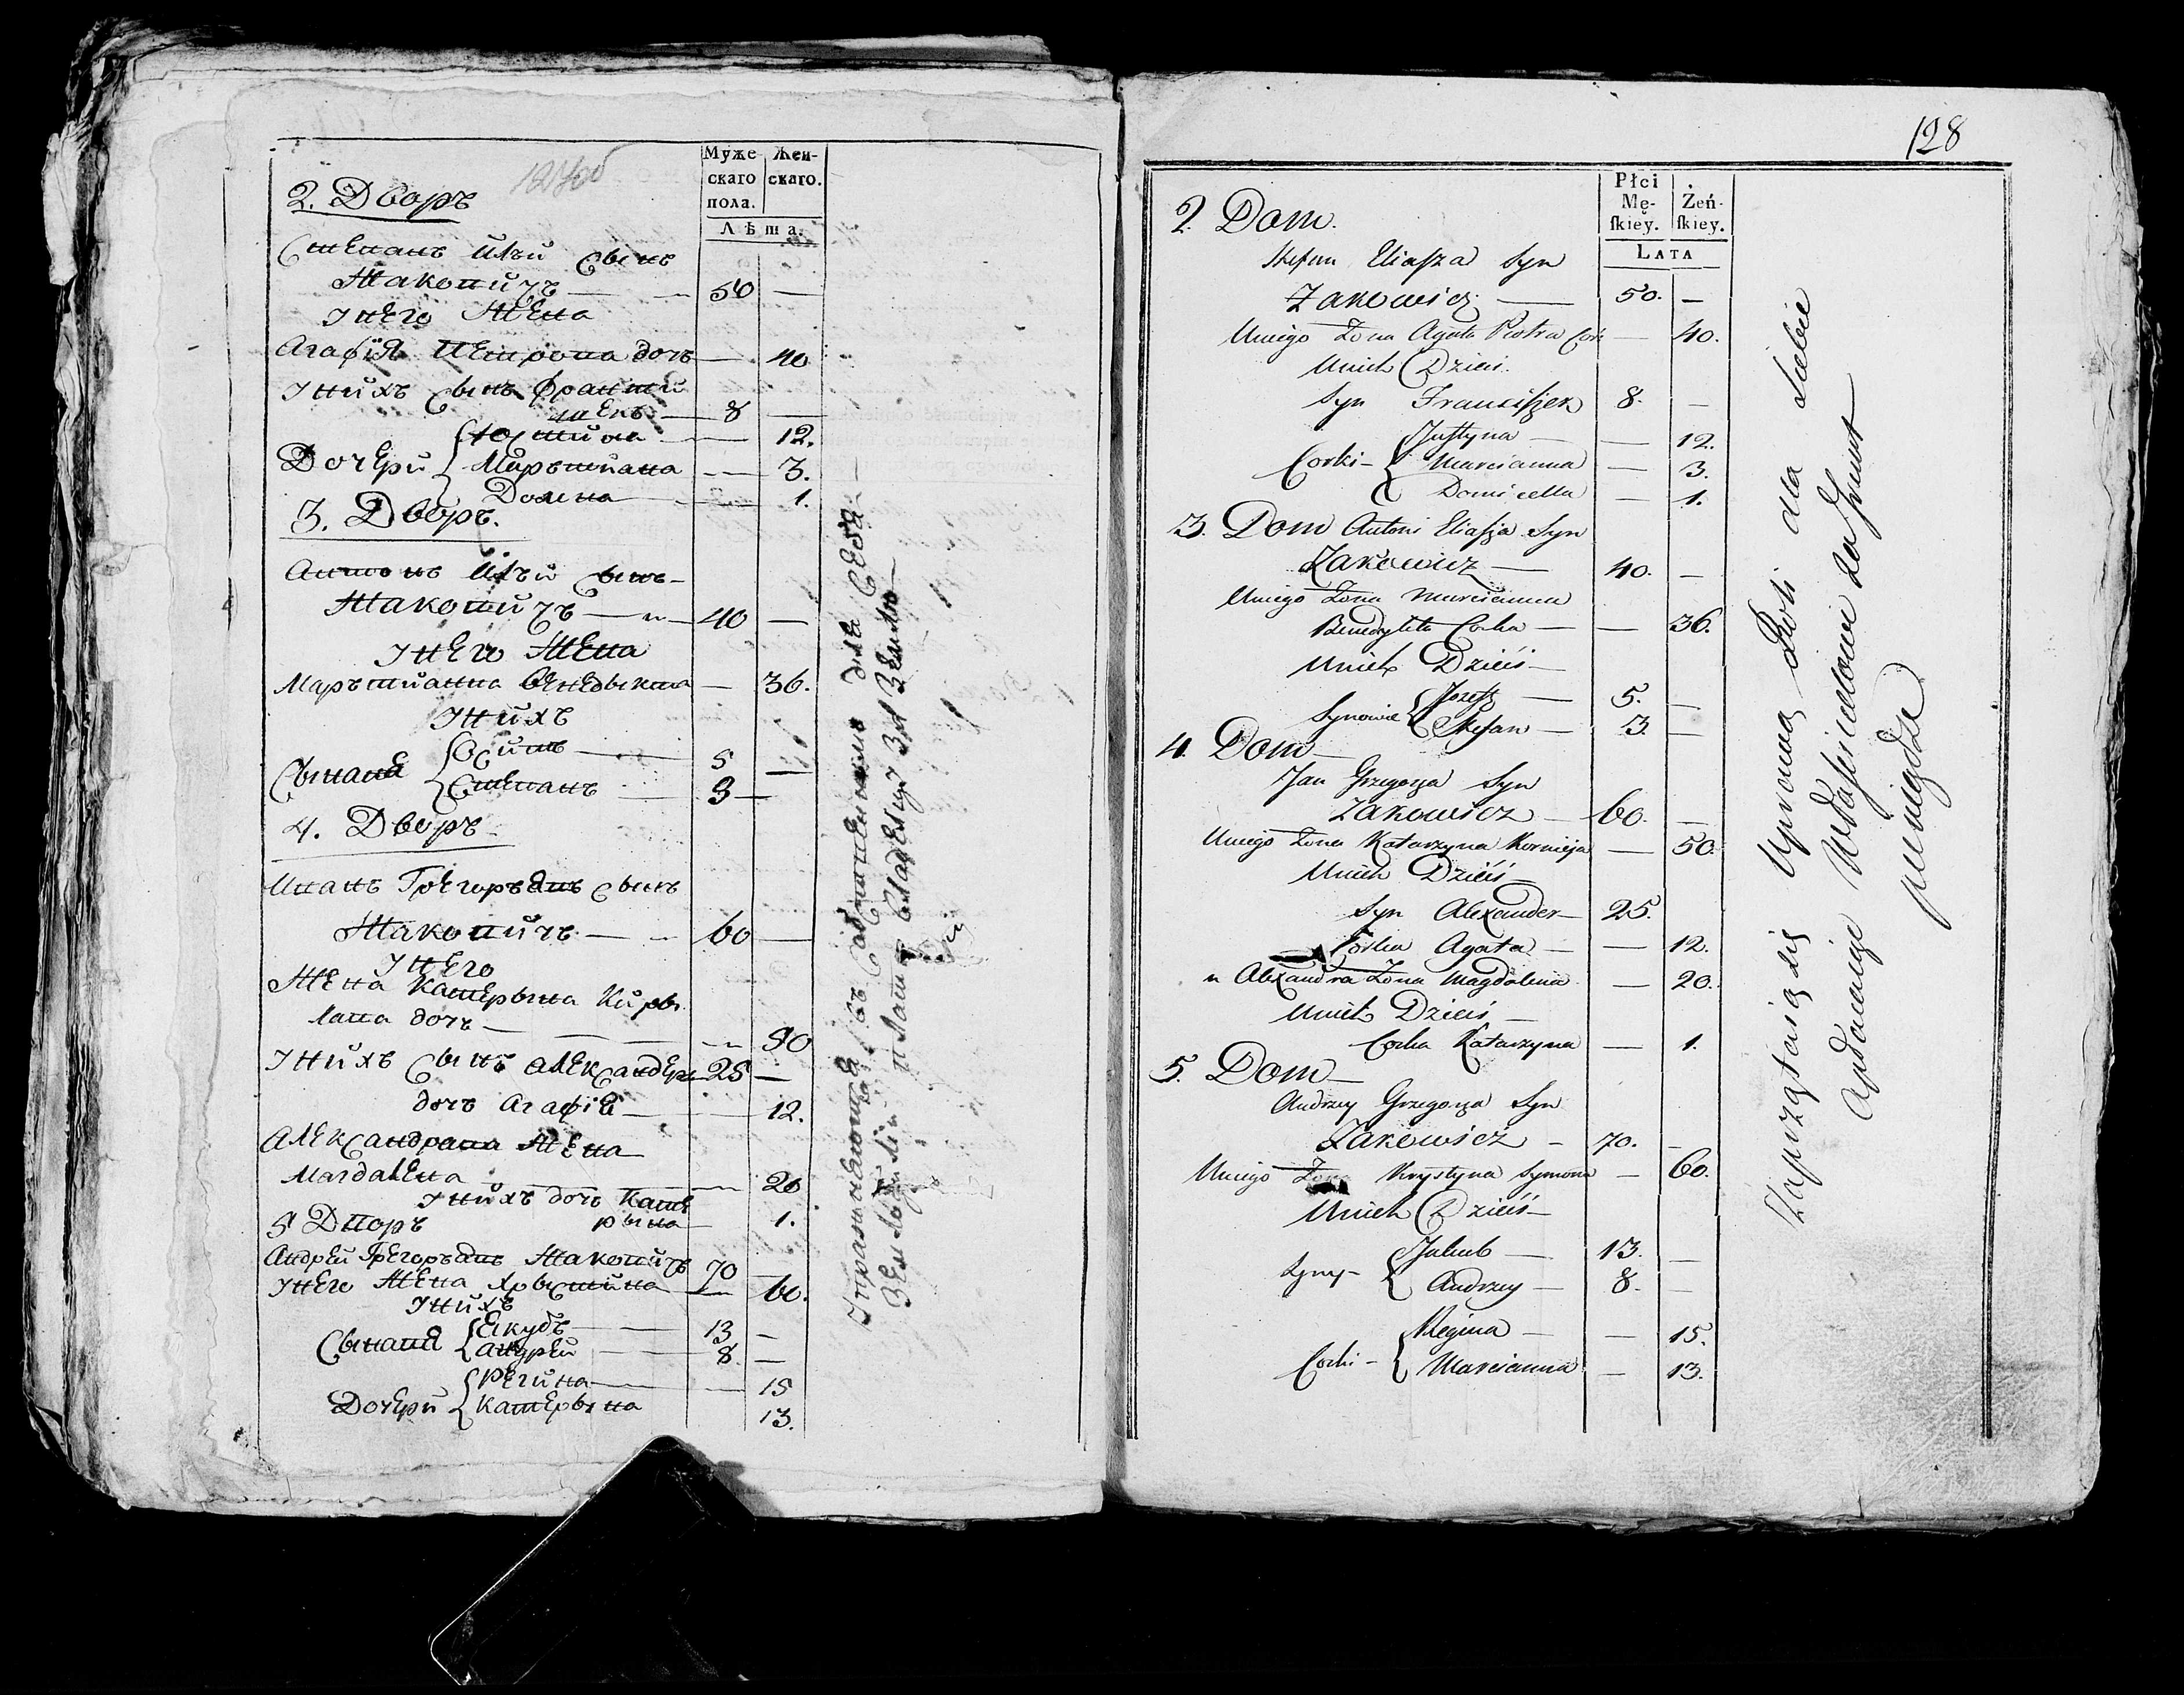 Муже Жен-
скаго скаго.
пола.
Лѣта.
2. Дворъ
Степанъ Илъи Сынъ
Жаковичъ — 50 —
Унего Жена
Агафія Петрова дочъ — 40
Унихъ Сынъ Франти
шекъ — 8 —
Юстина — 12.
Дочери { Марътиана — 3.
Домена — 1.
3. Дворъ.
Антонъ Илъи Сынъ —
Жаковичъ — 40 —
Унего Жена
Марътианна Бенедыкта — 36.
Унихъ
Сынавя { Осипъ — 5 —
Степанъ — 3 —
4. Дворъ
Иванъ Грегоръевъ Сынъ
Жаковичъ — 60 —
Унего
Жена Катерына Киры
лава дочъ — 50
Унихъ Сынъ Александеръ 25 —
дочъ Агафія — 12.
Александрава Жена
Магдалена — 20
Унихъ дочъ Кате
рына — 1.
5 Дворъ
Андрей Грегоръевъ Жаковичъ 70 —
Унего Жена Хрыстина — 60.
Унихъ
Сынавя { Якубъ — 13 —
Андрей — 8. —
Дочери { Регина — 15
Катерына 13.
для Себя —
за Землю —
128
Płci
Mę- Żeń-
ſkiey. ſkiey.
LATA
2. Dom.
Stefan Eliaſza Syn
Żakowicz — 50. —
Uniego Żona Agata Piotra Cór — 40.
Unich Dzieci.
Syn Franciſzek 8. —
Justyna — — 12.
Corki — { Marcianna — 3.
Domicella — 1.
3. Dom Antoni Eliaſza Syn
Żakowicz — 40. —
Uniego Żona Marcianna
Benedykta Corka — — 36.
Unich Dzieci —
Synowie { Jozef — 5. —
Stefan — 3. —
4. Dom —
Jan Grzegorza Syn
Żakowicz — 60. —
Uniego Żona Katarzyna Kornieja — 50.
Unich Dzieci —
Syn Alexander — 25.
Corka Agata — — 12.
u Alexandra Żona Magdalena — 20.
Unich Dzieci —
Corka Katarzyna — 1.
5. Dom —
Andrzey Grzegorza Syn
Żakowicz — 70. —
Uniego Żona Krystyna Symona — 60.
Unich Dzieci —
Syny — { Jakub — 13. —
Andrzey — 8. —
Regina — — 15.
Corki — { Marcianna — 13.
Zaprzątaią się Uprawą Roli dla Siebie
Apłacaiąc Właścicielowi za Grunt
pieniądze